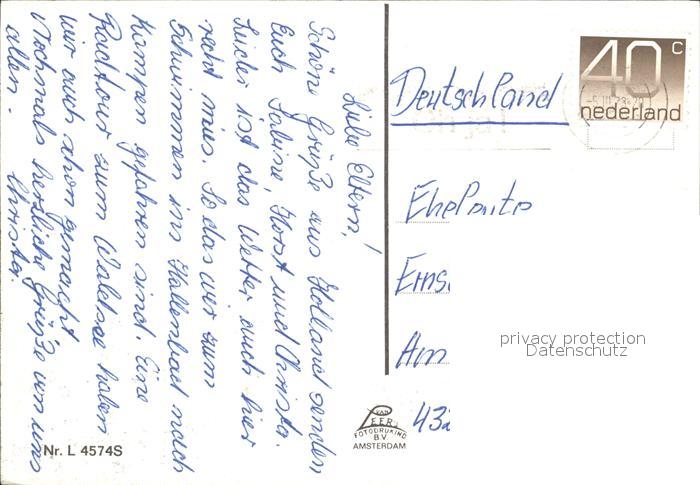 Liebe Eltern!
Schöne Grüße aus Holland senden
Euch Sabine, Horst und Christa.
Leider ist das Wetter auch hier
recht mies. So das wir zum
Schwimmen ins Hallenbad nach
Kampen gefahren sind. Eine
Radtour zum Waldsee haben
wir auch schon gemacht
Nochmals herzliche Grüße von uns
allen. Christa.
Nr. L 4574S
40 c
nederland
Deutschland
Ehe
Erns
Am
43
privacy protection
Datenschutz
VAN
LEER
FOTODRUKIND
B.V.
AMSTERDAM